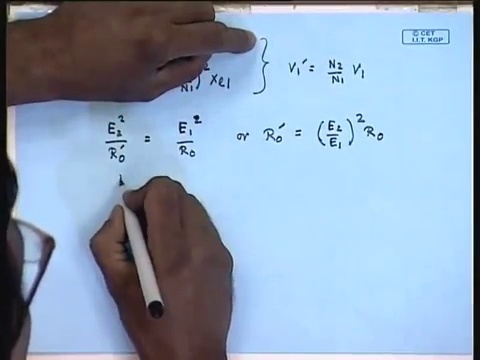 © CET
I.I.T. KGP
N1)² xe1 } V1' = N2/N1 V1
E2²/R0' = E1²/R0 or R0' = (E2/E1)² R0